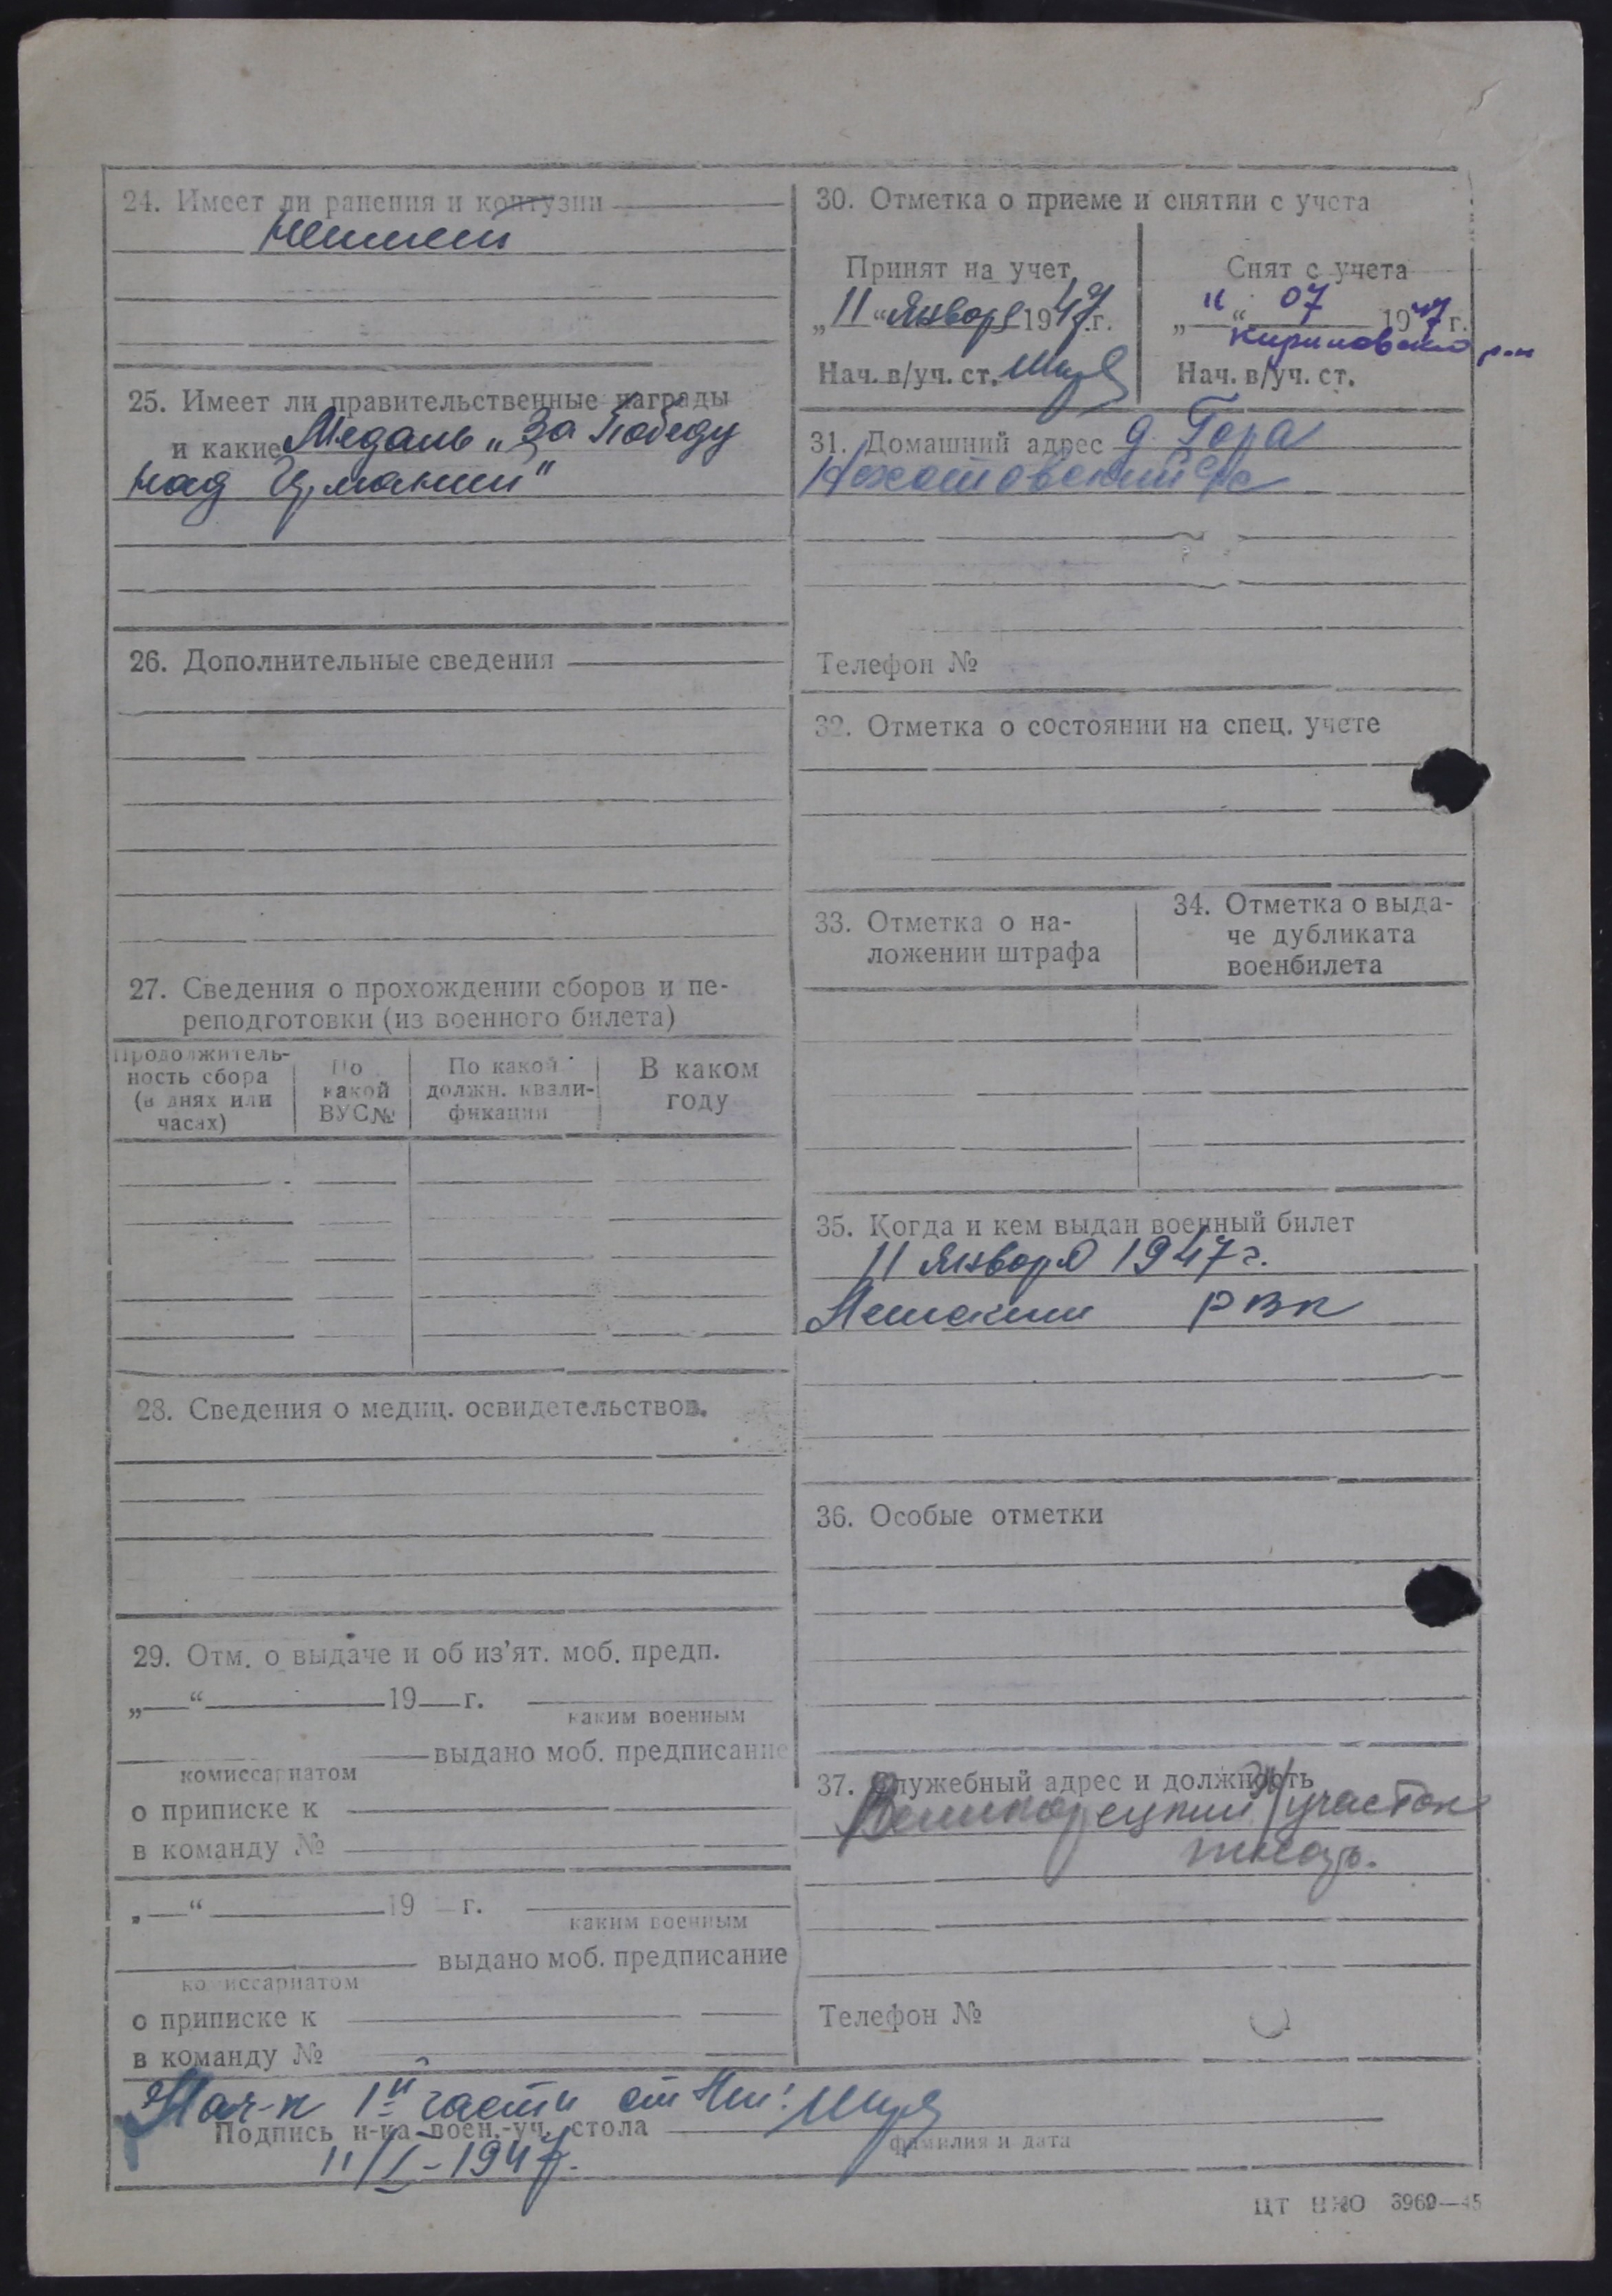 24. Имеет ли ранения и контузии
не имеет
25. Имеет ли правительственные награды
и какие Медаль „За Победу
над Германии"
26. Дополнительные сведения
27. Сведения о прохождении сборов и пе-
реподготовки (из военного билета)
Продолжитель-
ность сбора
(в днях или
часах)
По
какой
ВУС№
По какой
должн. квали-
фикации
В каком
году
28. Сведения о медиц. освидетельствов.
29. Отм. о выдаче и об из’ят. моб. предп.
„ “ 19 г.
каким военным
выдано моб. предписание
комиссариатом
о приписке к
в команду №
„ “ 19 г.
каким военным
выдано моб. предписание
комиссариатом
о приписке к
в команду №
30. Отметка о приеме и снятии с учета
Принят на учет
„11“ Января 1947 г.
Нач. в/уч. ст.
Снят с учета
„11“ 07 1947 г.
р-н
Нач. в/уч. ст.
31. Домашний адрес д. Гора
Телефон №
32. Отметка о состоянии на спец. учете
33. Отметка о на-
ложении штрафа
34. Отметка о выда-
че дубликата
военбилета
35. Когда и кем выдан военный билет
11 Января 1947 г.
РВК
36. Особые отметки
37. Служебный адрес и должность
участок
Телефон №
Нач-к 1й части
Подпись н-ка воен.-уч. стола
фамилия и дата
11/I-1947.
ЦТ НКО 3960—45